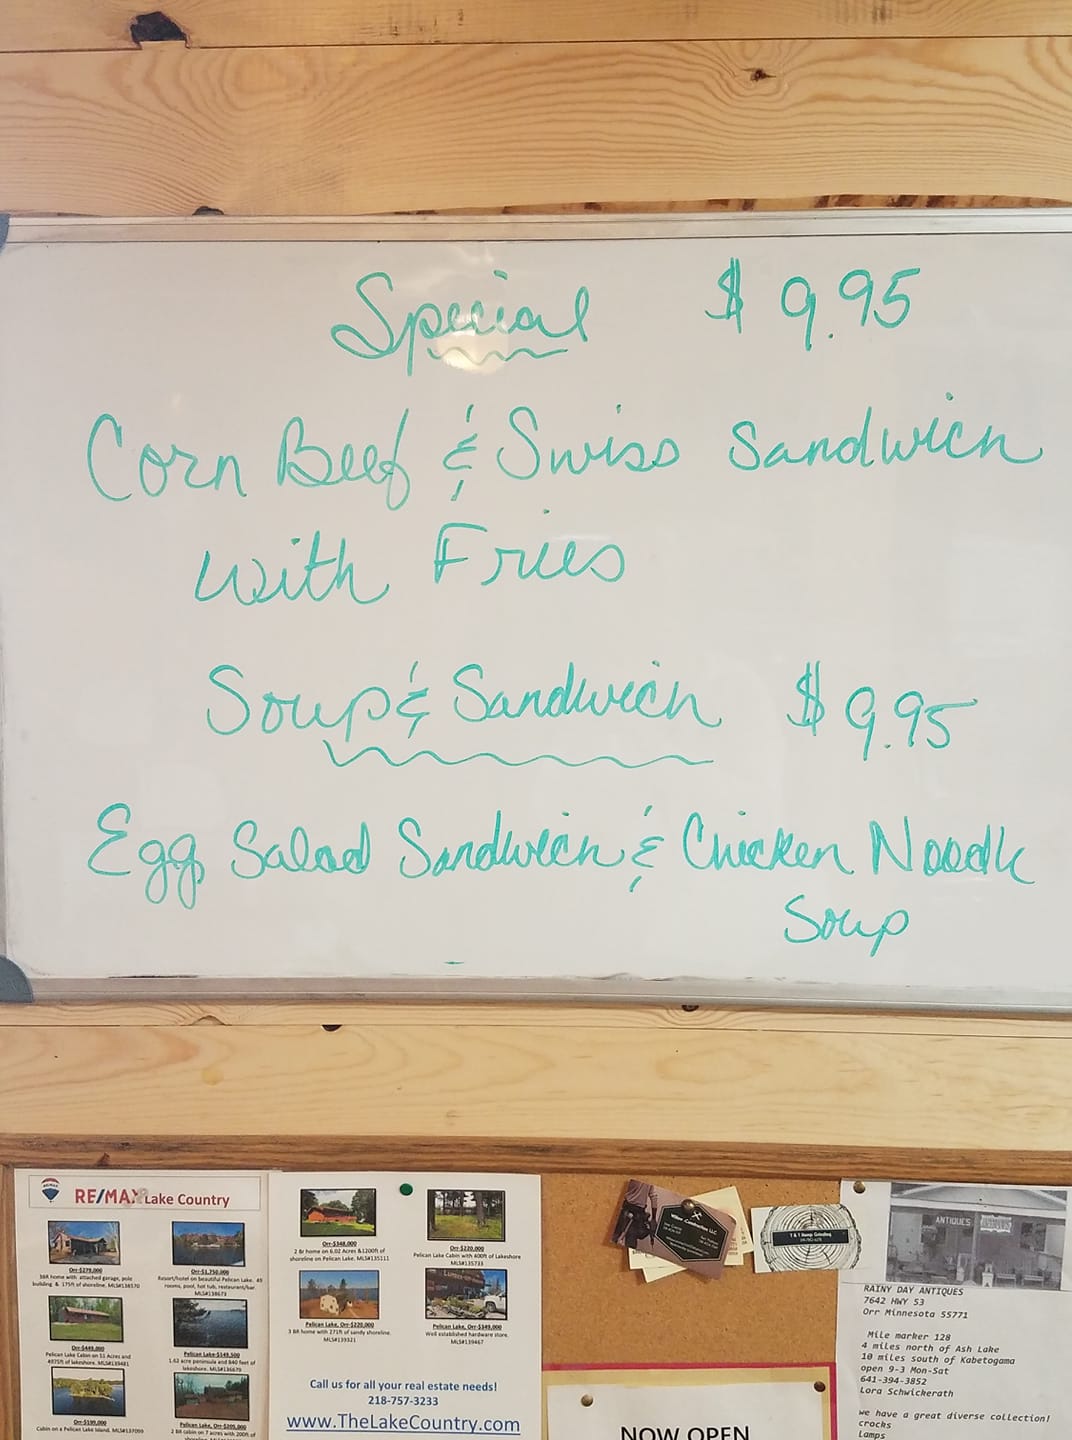 Special $ 9.95
Corn Beef & Swiss Sandwich
with Fries
Soup & Sandwich $ 9.95
Egg Salad Sandwich & Chicken Noodle
Soup
RE/MAX Lake Country
Orr-$279,000
3BR home with attached garage, pole
building & 175ft of shoreline. MLS#138570
Orr-$1,750,000
Resort/hotel on beautiful Pelican Lake. 49
rooms, pool, hot tub, restaurant/bar.
MLS#138673
Orr-$449,000
Pelican Lake Cabin on 55 Acres and
4975ft of lakeshore. MLS#139481
Pelican Lake-$149,500
1.62 acre peninsula and 840 feet of
lakeshore. MLS#136679
Orr-$199,000
Cabin on a Pelican Lake Island. MLS#137099
Pelican Lake, Orr-$205,000
2 BR cabin on 7 acres with 200ft of
Orr-$348,000
2 Br home on 6.02 Acres &1200ft of
shoreline on Pelican Lake. MLS#135111
Orr-$220,000
Pelican Lake Cabin with 400ft of Lakeshore
MLS#135733
Pelican Lake, Orr-$220,000
3 BR home with 271ft of sandy shoreline.
MLS#139321
Pelican Lake, Orr-$349,000
Well established hardware store.
MLS#139467
Call us for all your real estate needs!
218-757-3233
www.TheLakeCountry.com
NOW OPEN
ANTIQUES
RAINY DAY ANTIQUES
7642 HWY 53
Orr Minnesota 55771
Mile marker 128
4 miles north of Ash Lake
10 miles south of Kabetogama
open 9-3 Mon-Sat
641-394-3852
Lora Schwickerath
we have a great diverse collection!
crocks
Lamps